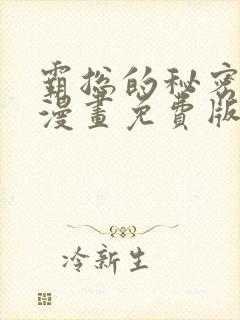 霸总的秘密
漫畫免費版
冷新生